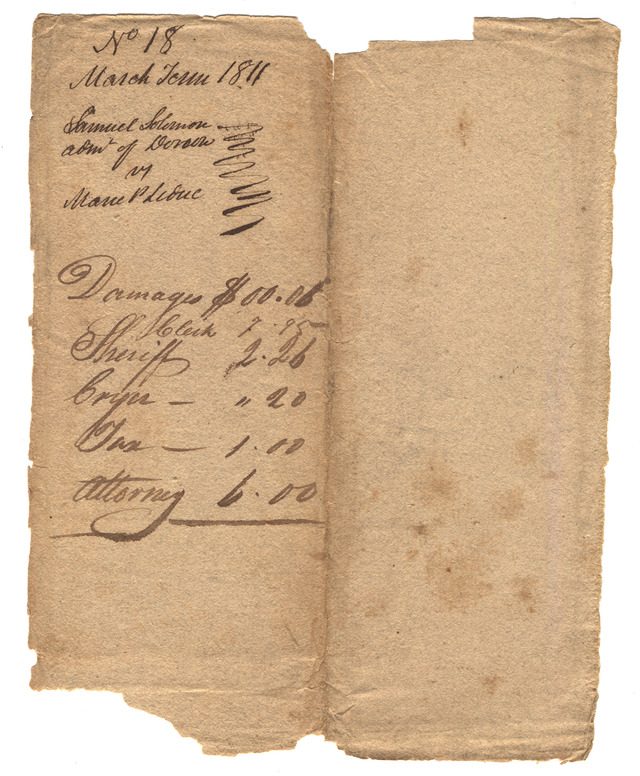 No 18
March Term 1811
Samuel Solomon
admr of
vs
Marie P Leduc
Damages $ 00.06
Clerk 7.95
Sheriff 2.26
Cryer — " 20
Tax — 1.00
Attorney 6.00